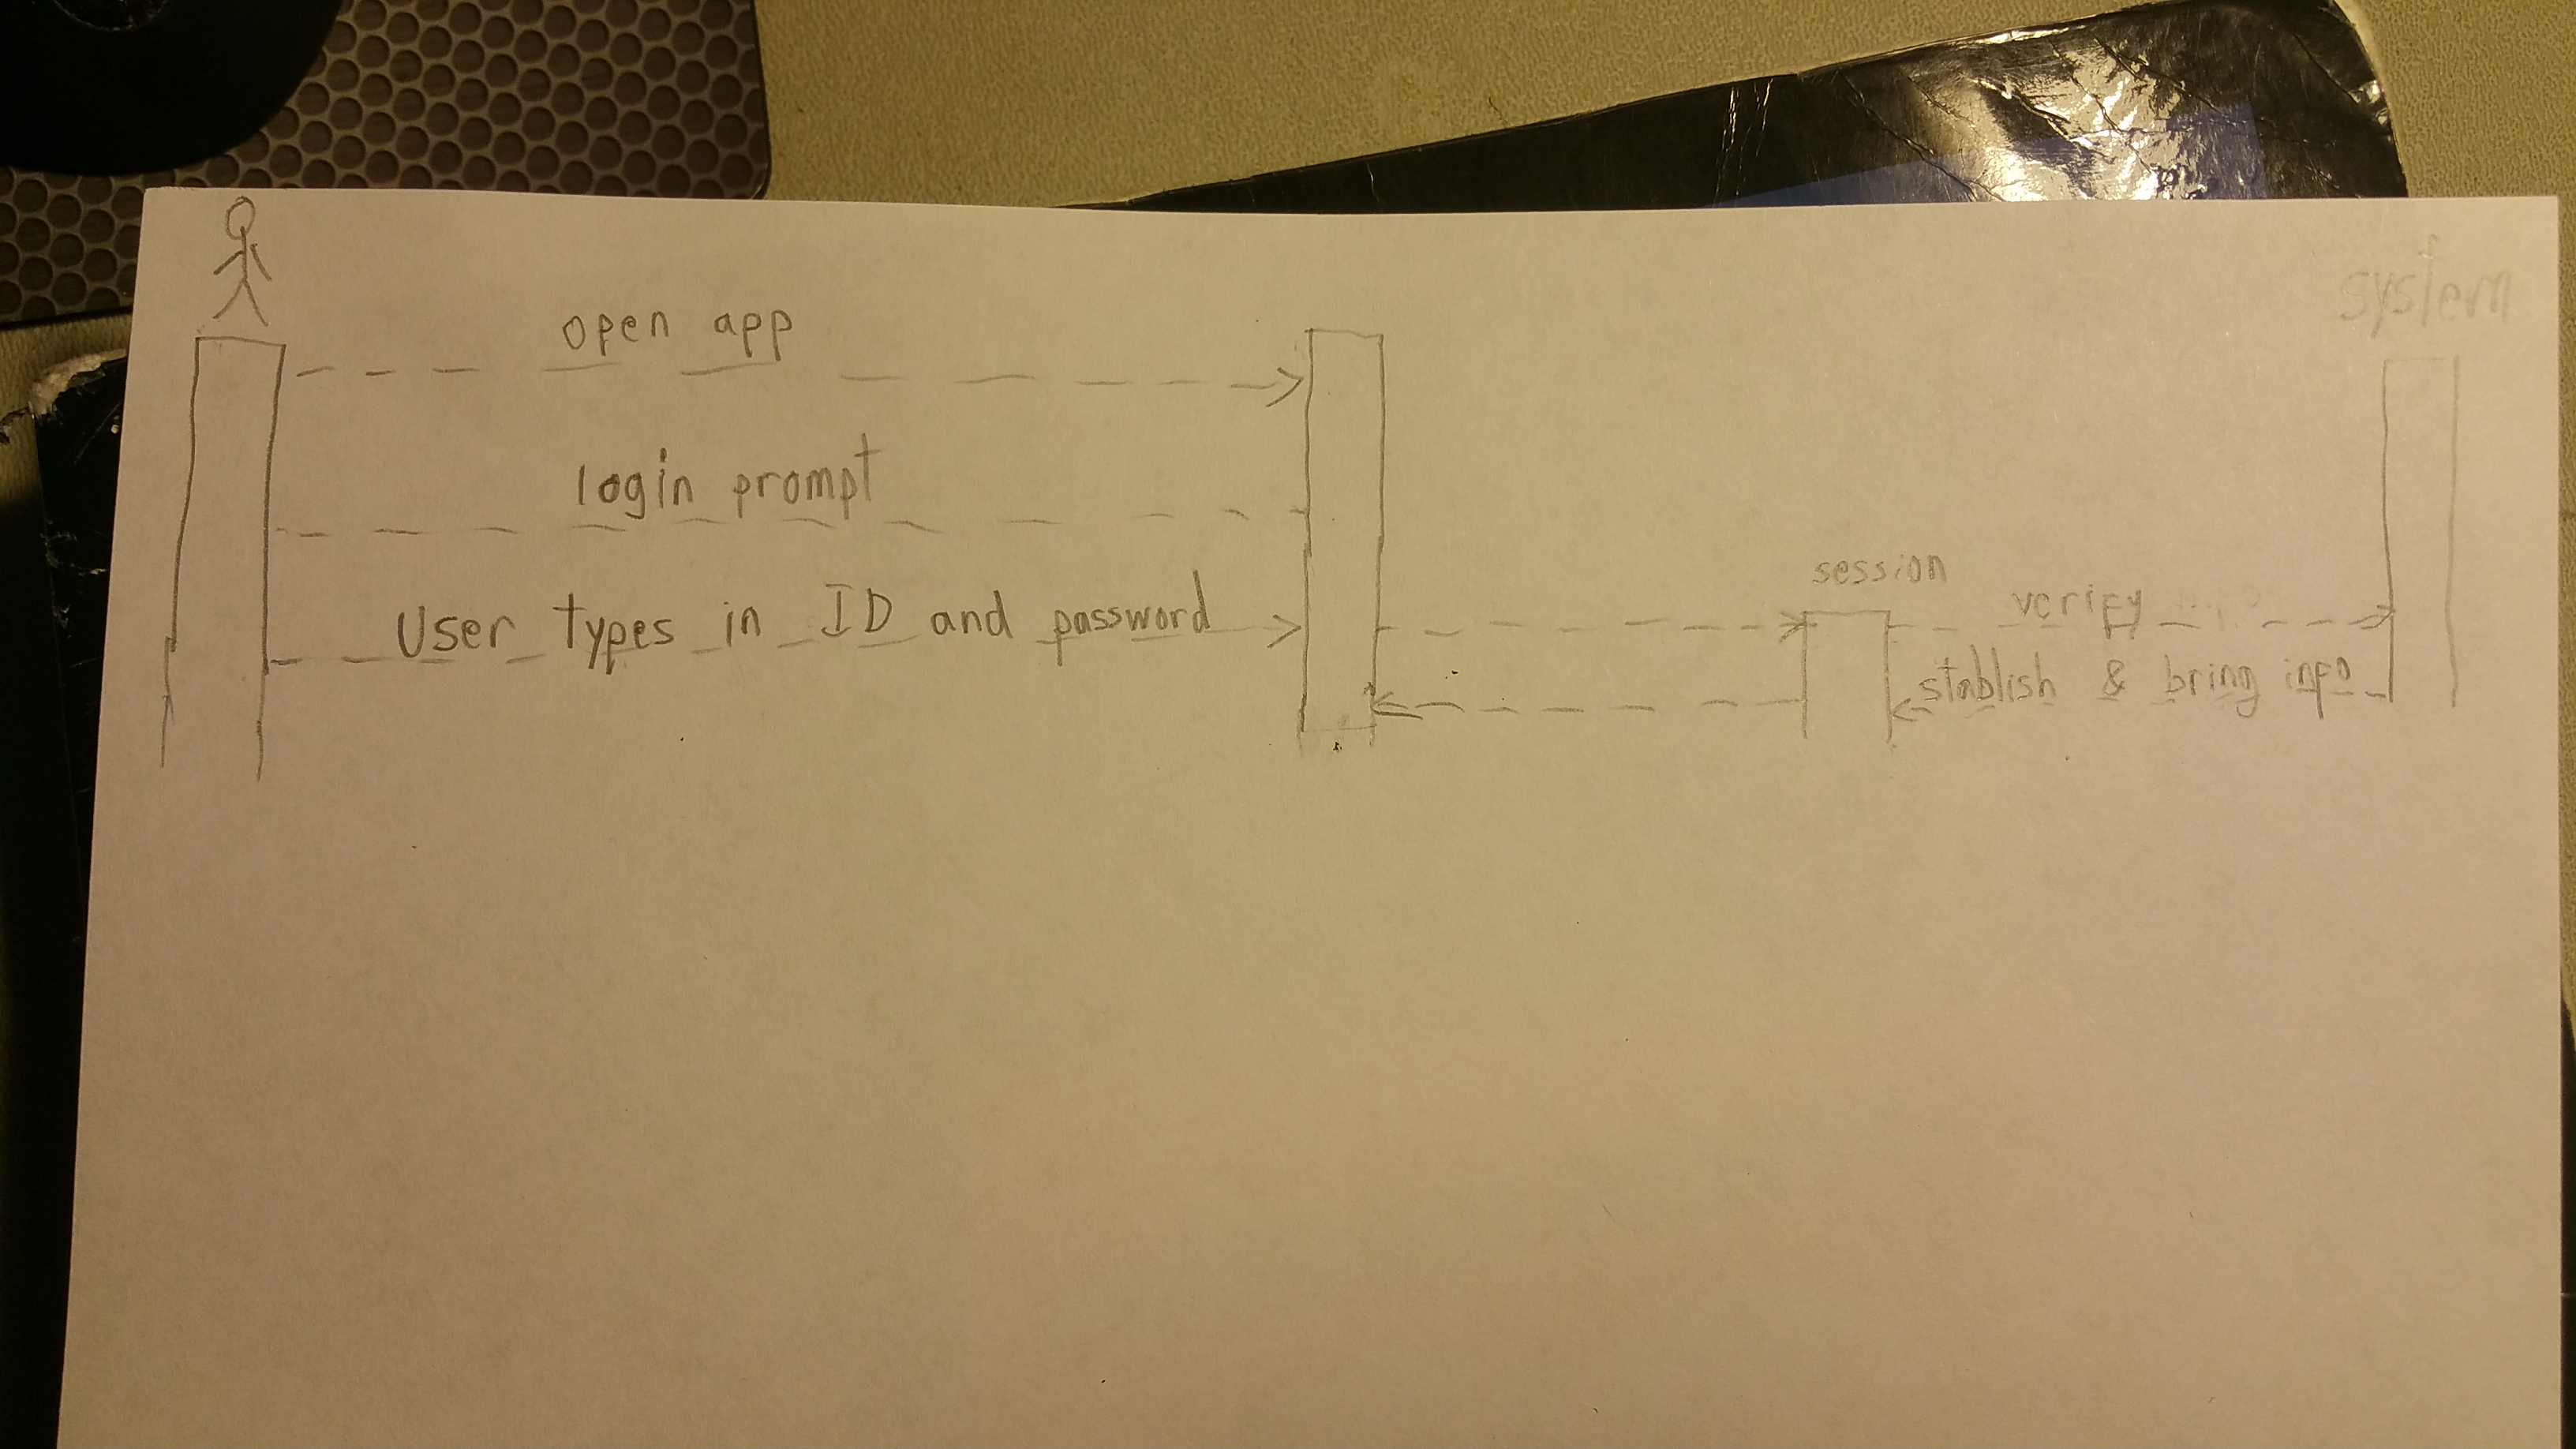 system
open app
login prompt
session
verify
User types in ID and password
stablish & bring info